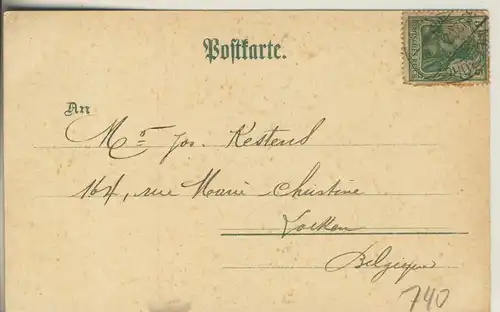 Postkarte.
An
Mr. Jos. Kestens
164, rue Marie Christine
Laeken
Belgique
740